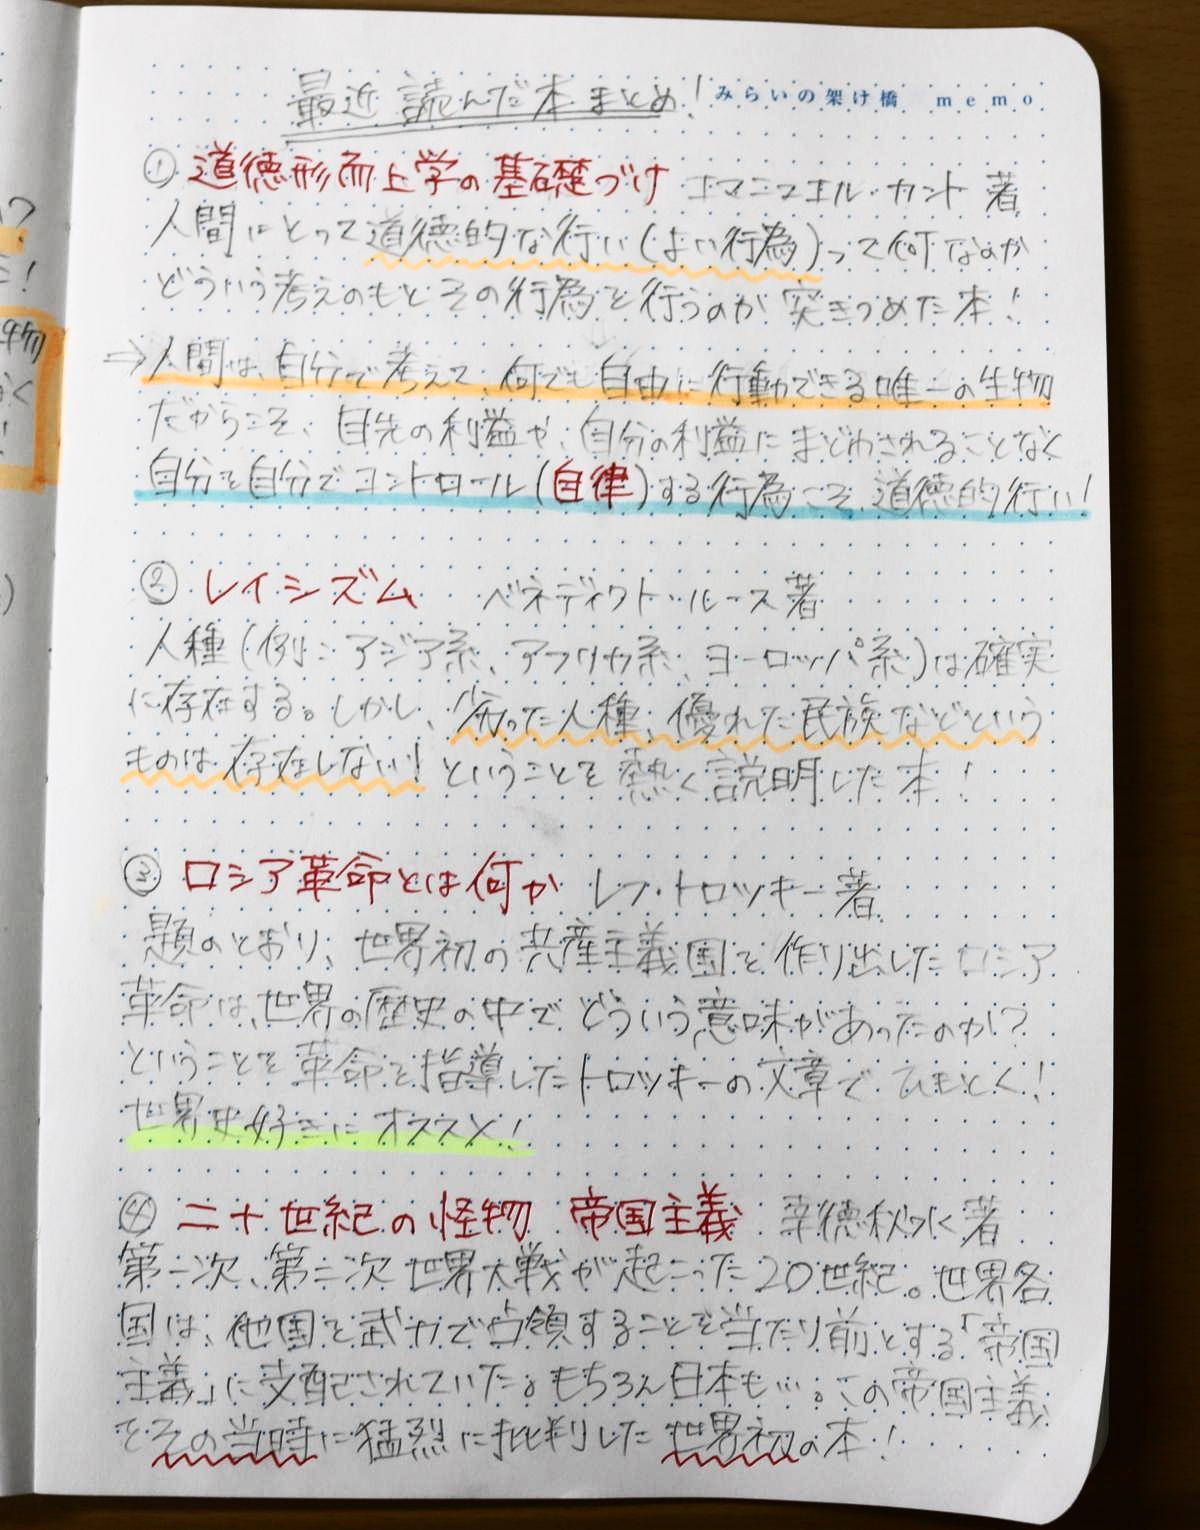 最近読んだ本まとめ! みらいの架け橋 memo
① 道徳形而上学の基礎づけ エマニュエル・カント 著
人間にとって道徳的な行い(よい行為)って何なのか
どういう考えのもとその行為を行うのが突きつめた本!
⇒人間は、自分で考えて、何でも自由に行動できる唯一の生物
だからこそ、目先の利益や、自分の利益にまどわされることなく
自分を自分でコントロール(自律)する行為こそ、道徳的行い!
② レイシズム ベネディクト・ルース著
人種(例:アジア系、アフリカ系、ヨーロッパ系)は確実
に存在する。しかし、劣った人種、優れた民族などという
ものは存在しない! ということを熱く説明した本!
③ ロシア革命とは何か レフ・トロツキー著
題のとおり、世界初の共産主義国を作り出したロシア
革命は、世界の歴史の中でどういう意味があったのか?
ということを革命を指導したトロツキーの文章でひもとく!
世界史好きにオススメ!
④ 二十世紀の怪物 帝国主義 幸徳秋水著
第一次、第二次世界大戦が起こった20世紀。世界各
国は、他国を武力で占領することを当たり前とする「帝国
主義」に支配されていた。もちろん日本も…。この帝国主義
をその当時に猛烈に批判した世界初の本!
い?
!
生物
なく
!
)